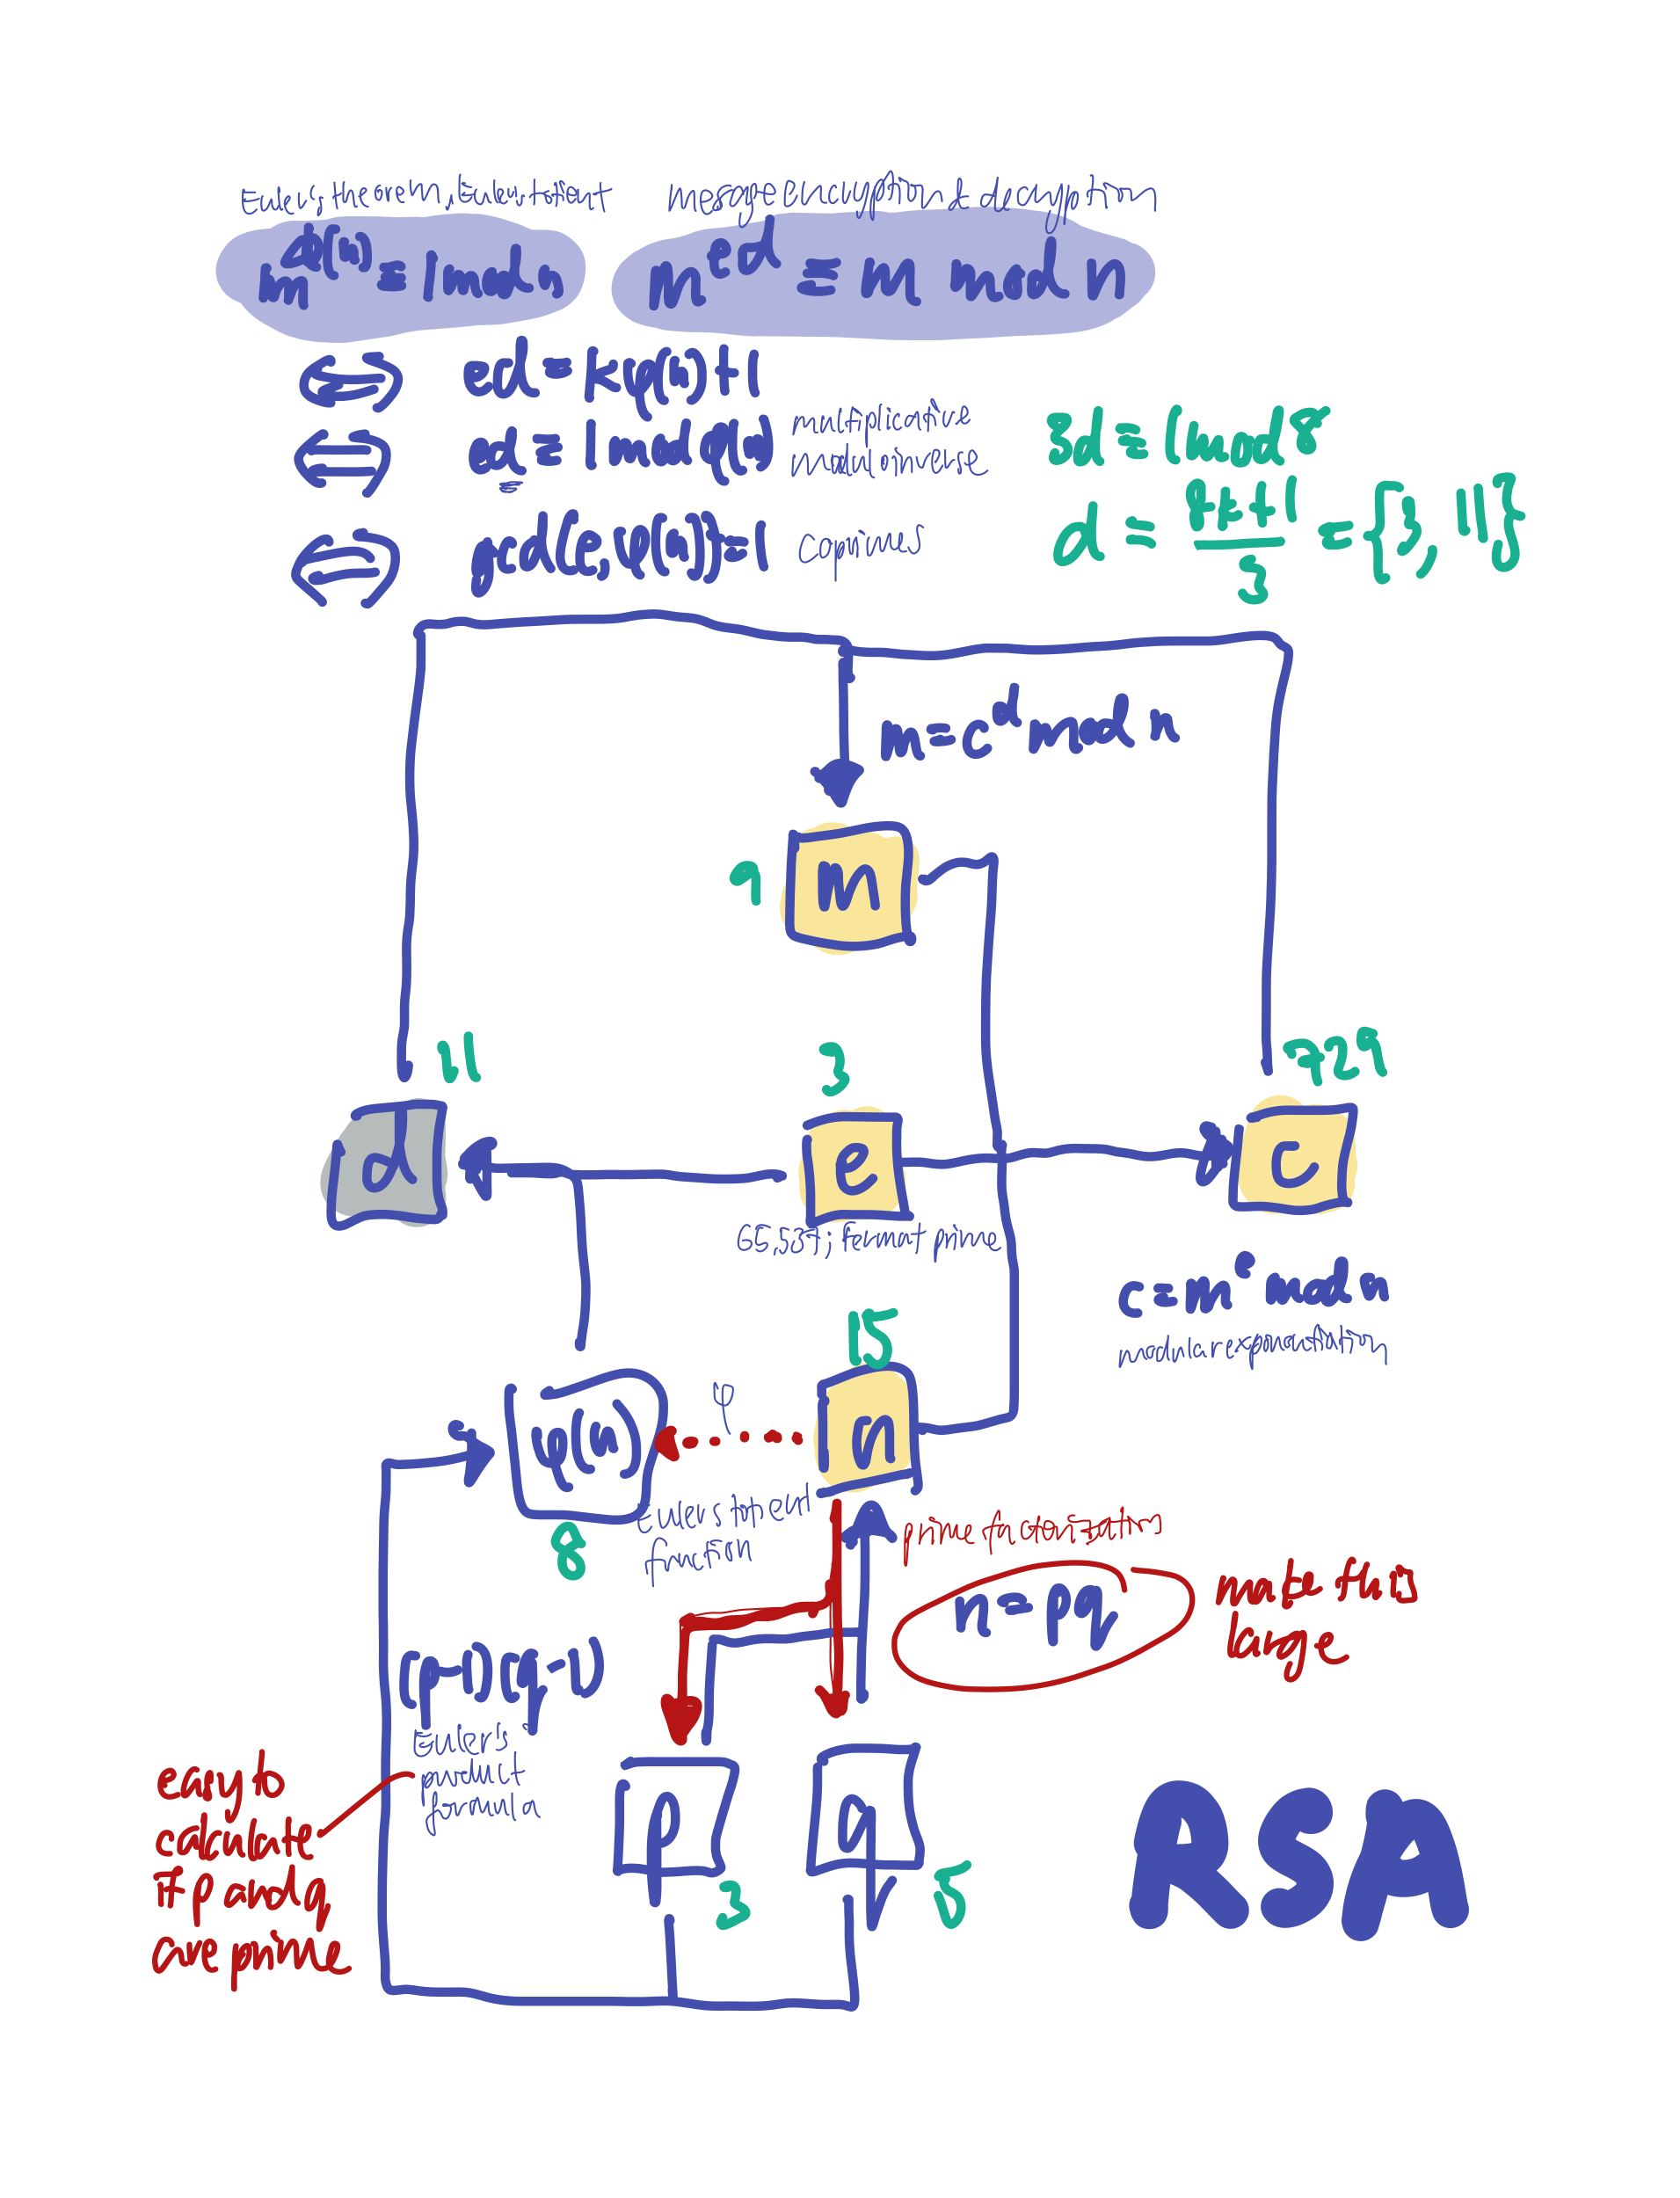 Euler's theorem, Euler's totient
message encryption & decryption
m^φ(n) ≡ 1 mod n
m^ed ≡ m mod n
⇔ ed = kφ(n)+1
⇔ ed ≡ 1 mod φ(n)
multiplicative
⇔ gcd(e, φ(n)) = 1
coprimes
3d ≡ 1 mod 8
d = 8k+1 / 3 = {3, 11}
m = c^d mod n
9
m
11
3
729
d
e
c
65,537; fermat prime
c = m^e mod n
modular exponentiation
15
φ
φ(n)
n
Euler's totient
function
8
prime factorization
n = pq
make this
large
(p-1)(q-1)
Euler's
product
formula
easy to
calculate
if p and q
are prime
p
q
3
5
RSA